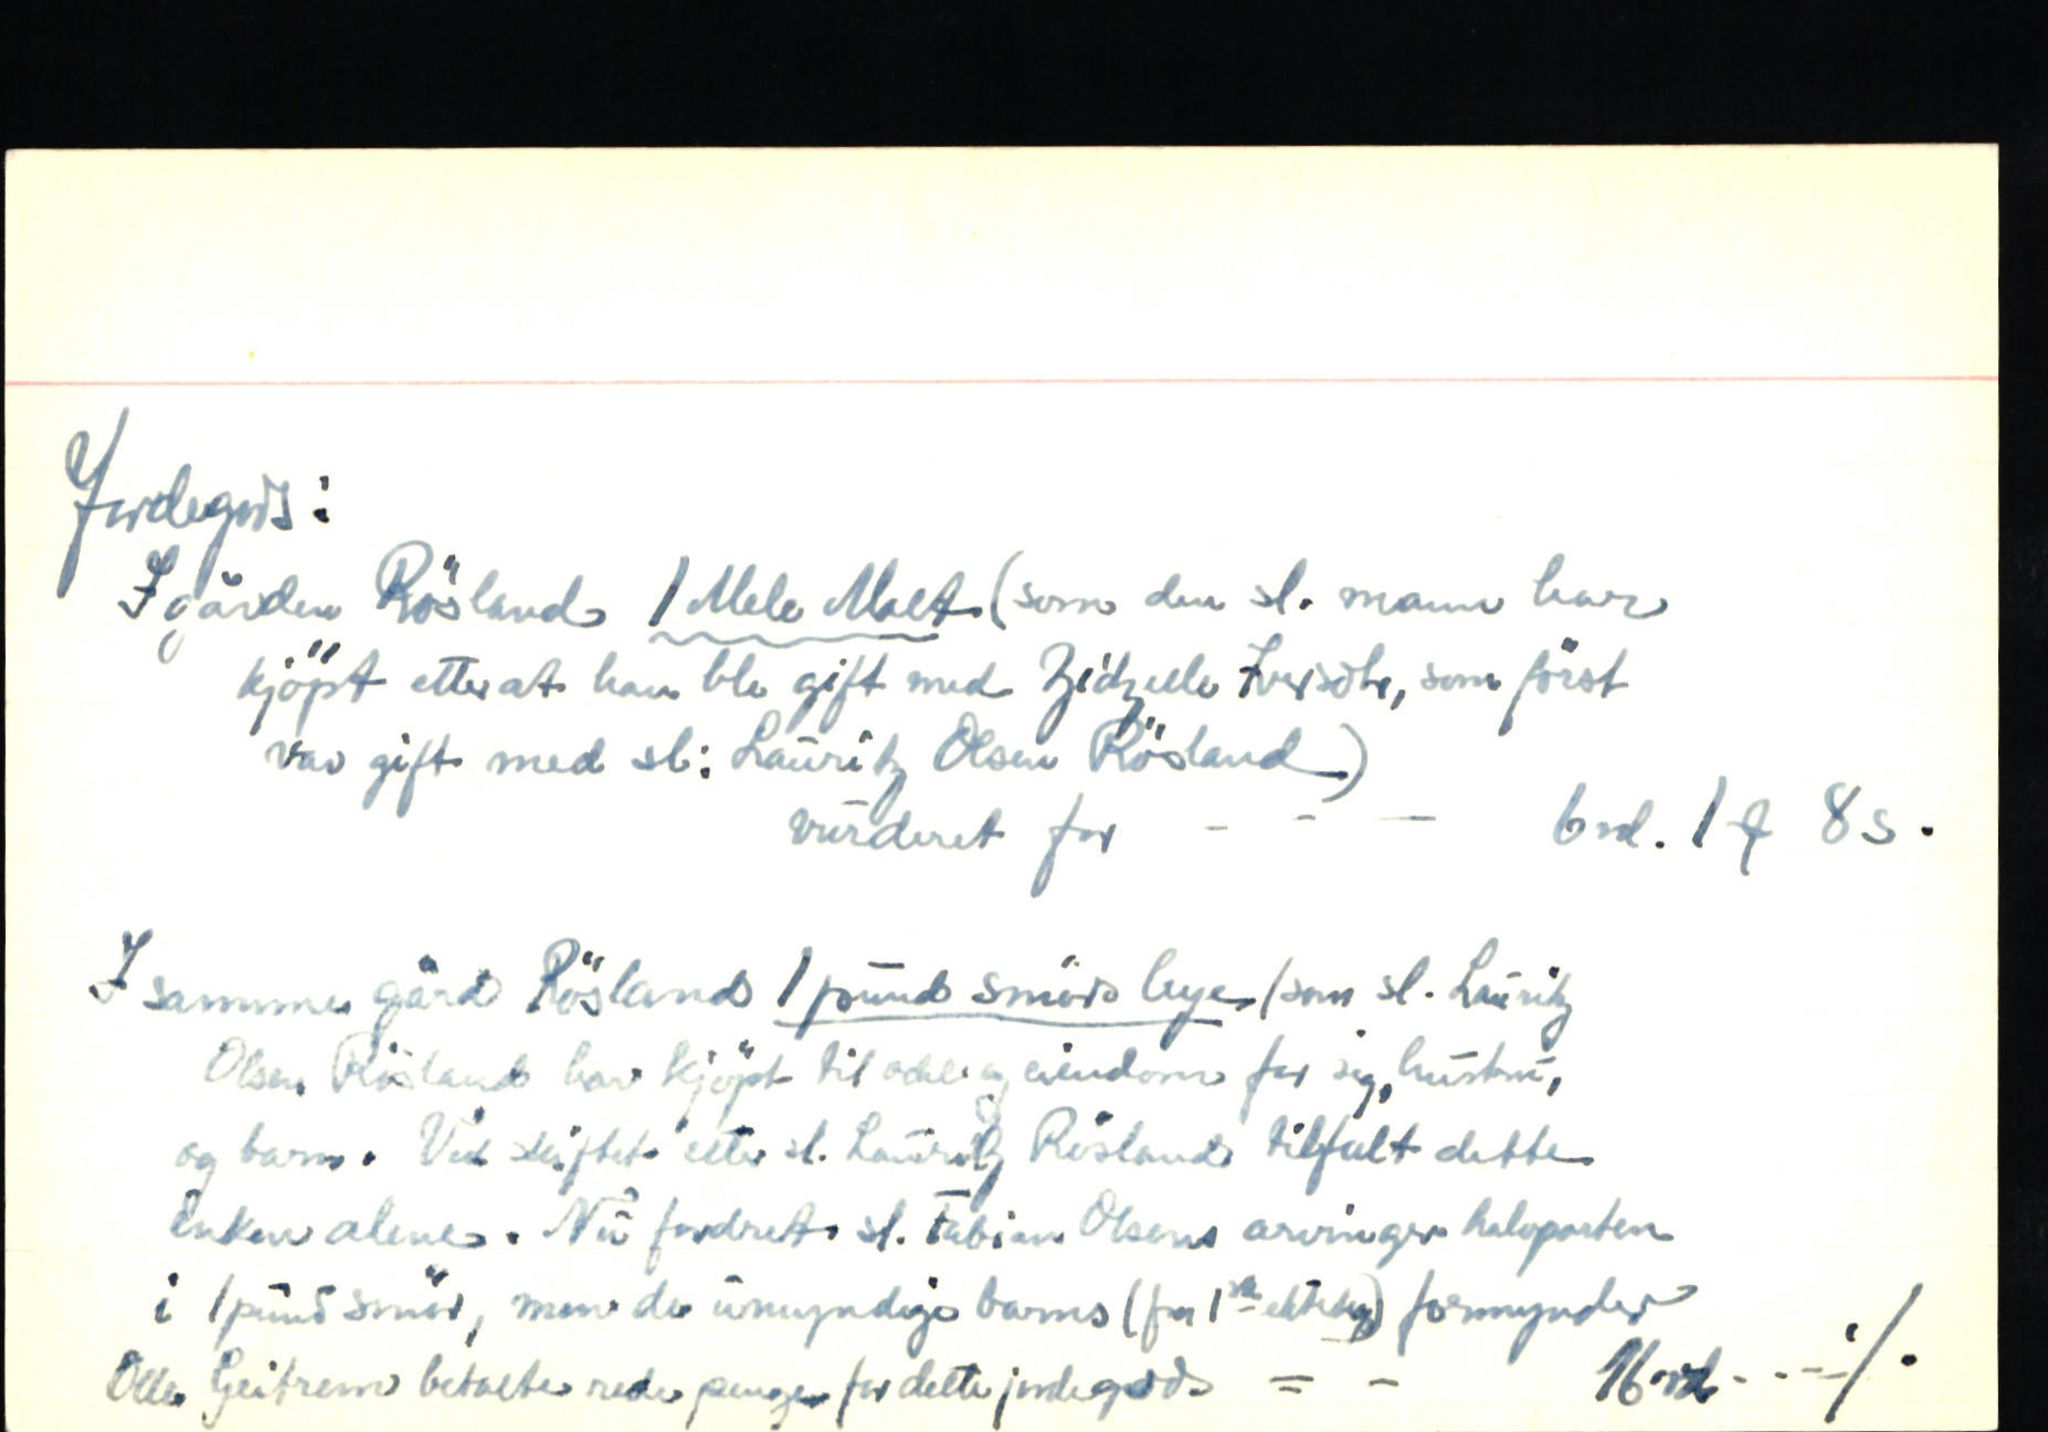 Jordegods:
I gården Rösland 1 Mele Malt (som den sl. mann har
kjöpt etter at han ble gift med Zidzele Iversdtr, som först
var gift med sl: Lauritz Olsen Rösland)
vurderet for - - - 6 rd. 1 8 s.
I samme gård Rösland 1 pund smörs leye (som sl. Lauritz
Olsen Rösland har kjöpt til odel og eiendom for sig, hustru,
og barn. Ved skiftet etter sl. Lauritz Rösland tilfalt dette
enken alene. Nu fordret sl. Fabian Olsens arvinger halvparten
i 1 pund smör, men de umyndige barns (fra 1ste ekteskap) formynder
Olle Geitrem betalte rede penge for dette jordegods = - 16 rd - - - -/.